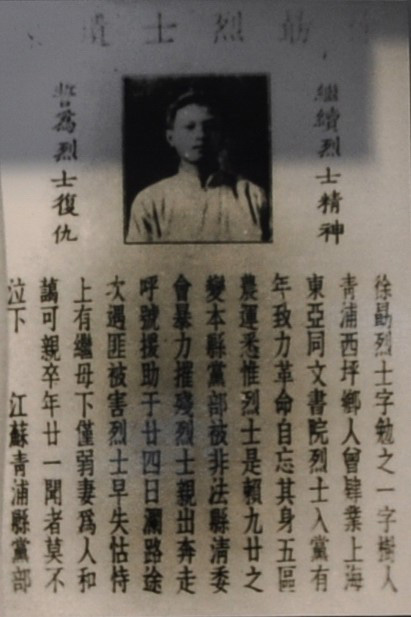 烈士遺
繼續烈士精神
誓為烈士復仇
徐勗烈士字勉之一字樹人
青浦西坪鄉人曾肄業上海
東亞同文書院烈士入黨有
年致力革命自忘其身五區
農運悉惟烈士是賴九廿之
變本縣黨部被非法縣清委
會暴力摧殘烈士親出奔走
呼號援助于廿四日瀾路途
次遇匪被害烈士早失怙恃
上有繼母下僅弱妻爲人和
藹可親卒年廿一聞者莫不
泣下　江蘇青浦縣黨部